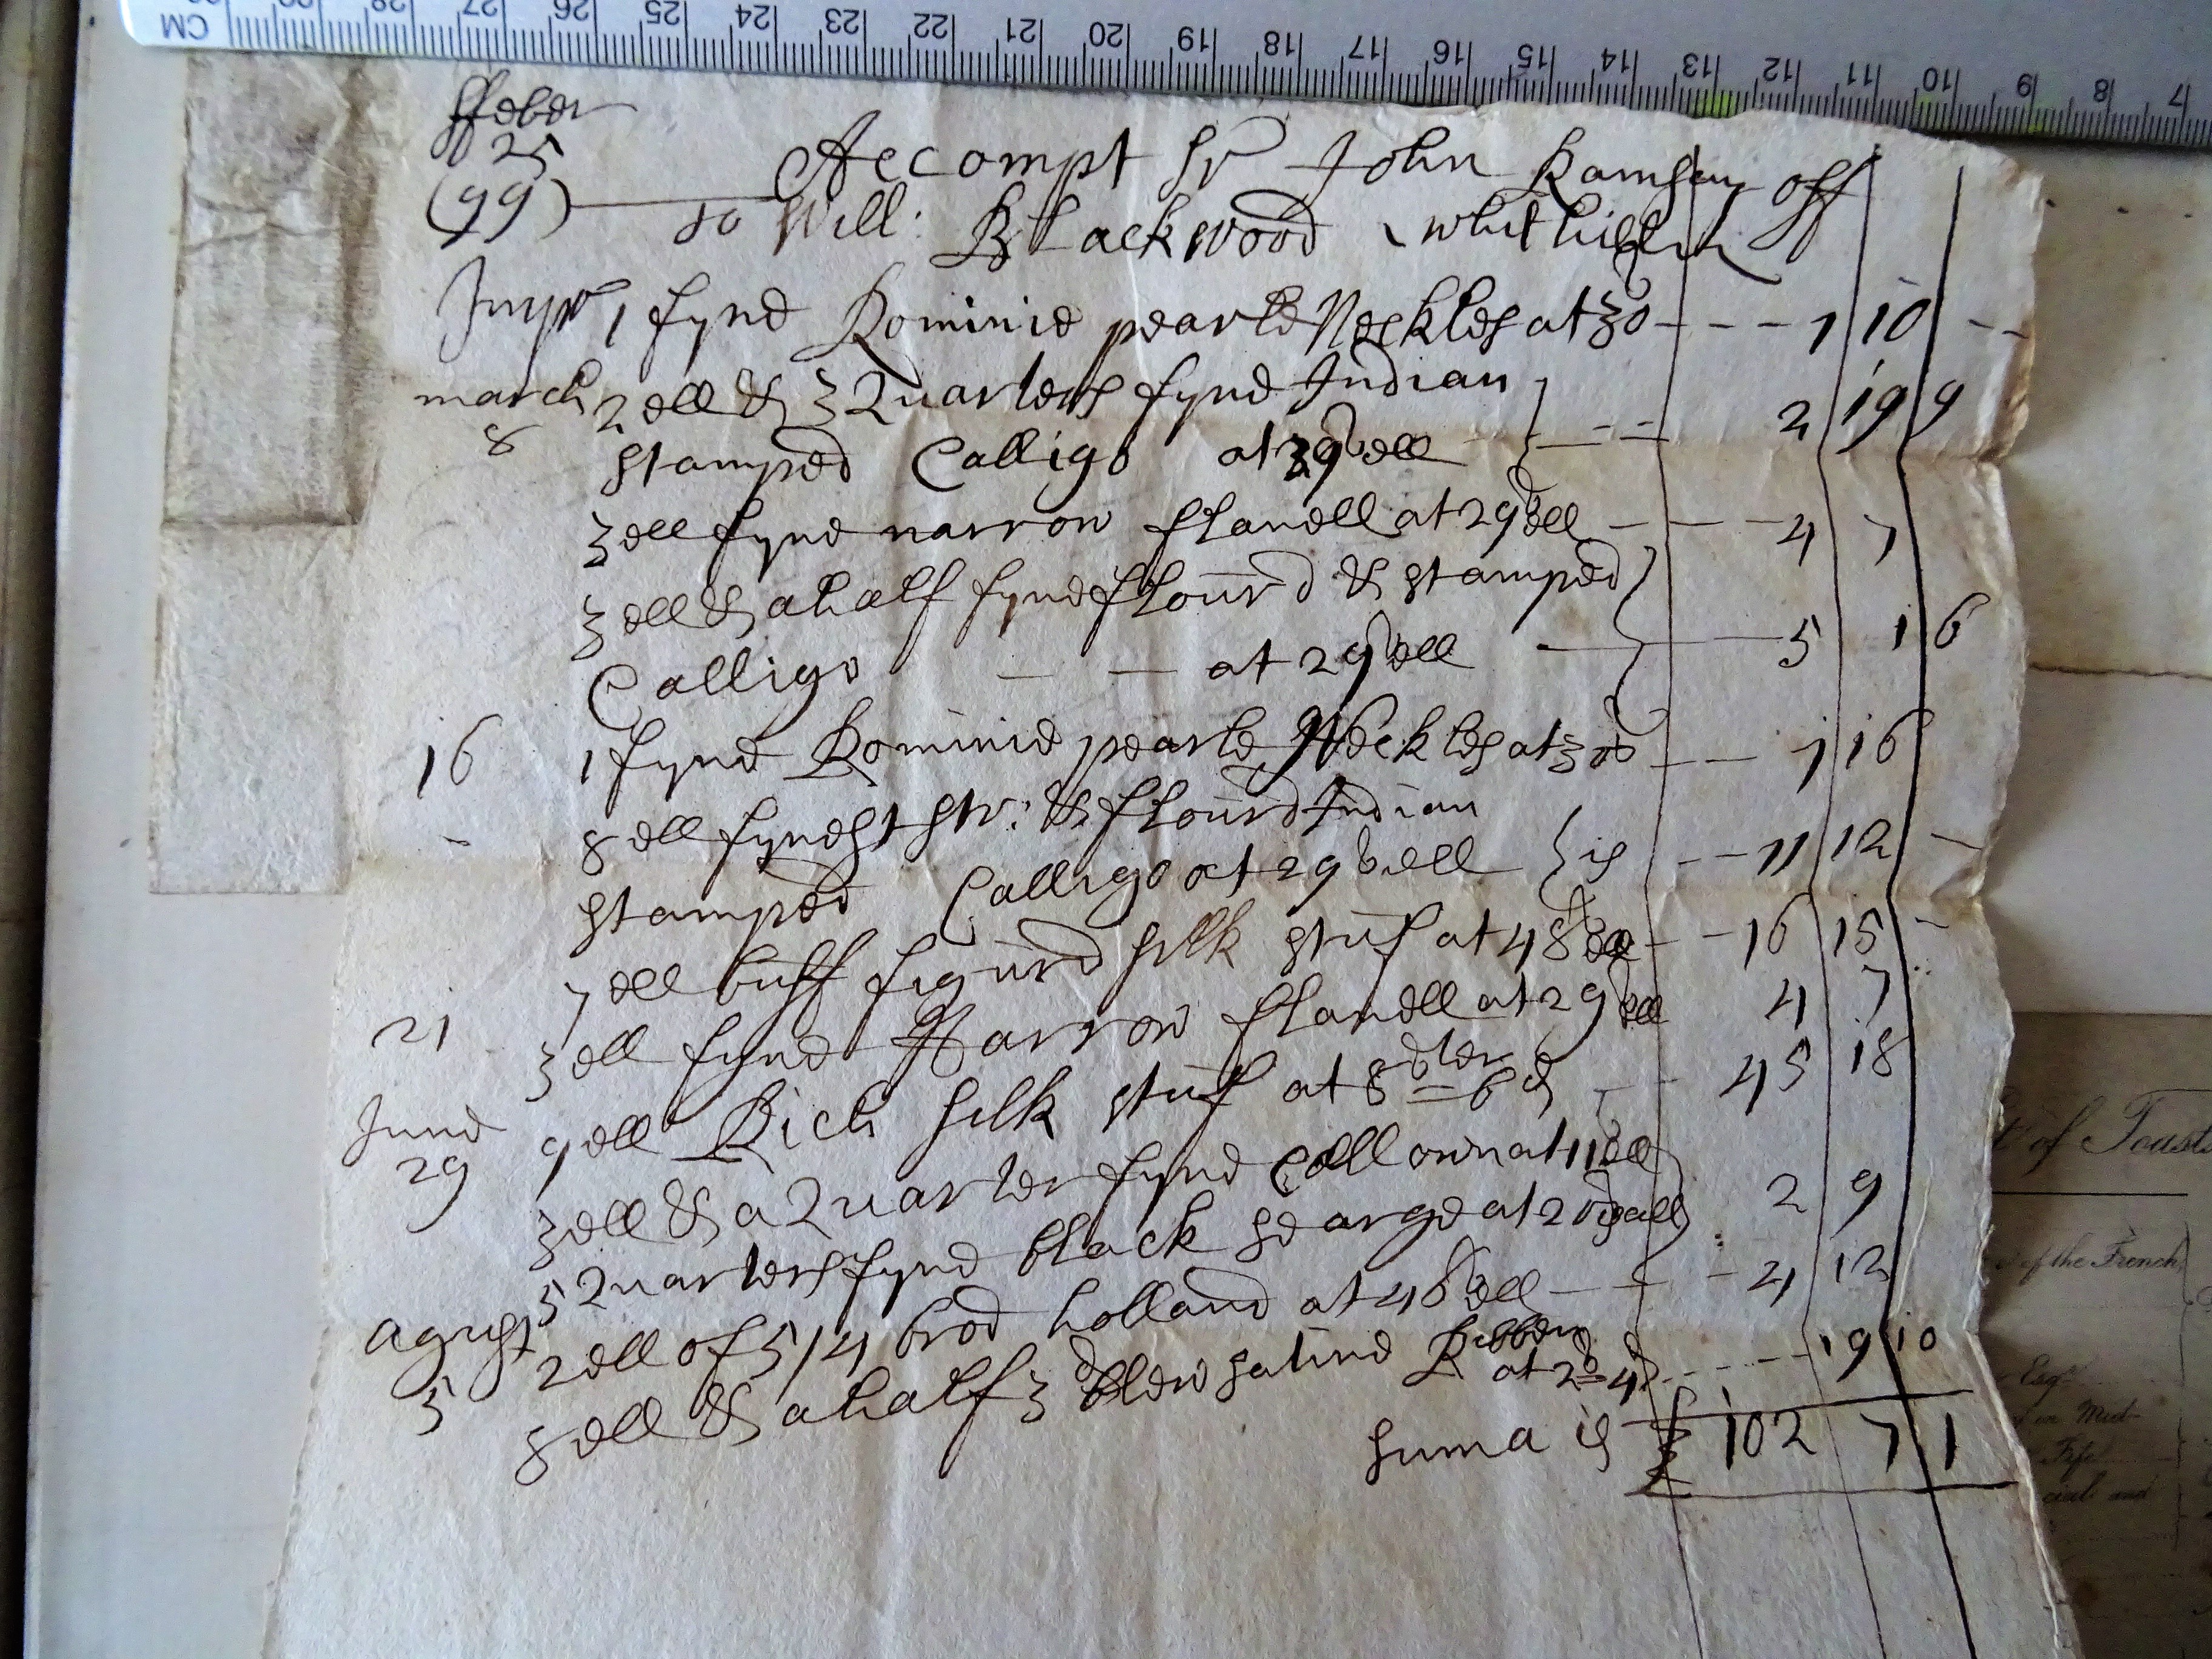 CM 29 28 27 26 25 24 23 22 21 20 19 18 17 16 15 14 13 12 11 10 9 8 7
ffeber
25 Accompt Sr John Ramsay off
(99) to Will: Blackwood whithill
Impr 1 fyne Rominie pearle Neckles at 30 1 10
march 2 ell & 3 Quarters fyne Indian
8 stamped Calligo at ell 2 19 9
3 ell fyne narrow flanell at 29s ell 4 7
3 ell & a half fyne flourd & stamped
Calligo at 29s ell 5 1 6
16 1 fyne Rominie pearle Neckles at 1 16
8 ell fynest str: & flourd Indian
stamped Calligo at 29s ell is 11 12
7 ell buff figurd silk stuf at 48s ell 16 15
21 3 ell fyne Narrow flanell at 29s ell 4 7
June 9 ell Rich silk stuf at 45 18
29 3 ell & a Quarter fyne at 11s ell
5 Quarters fyne black searge at 20s is all 2 9
agust 2 ell of 5/4 brod holland at 46s ell 4 12
5 8 ell & a half 3d blew satine Ribben
at 2s 4d 19 10
suma is £ 102 7 1
t of Toast
of the French
Esqr
in Mid-
Fife
cial and